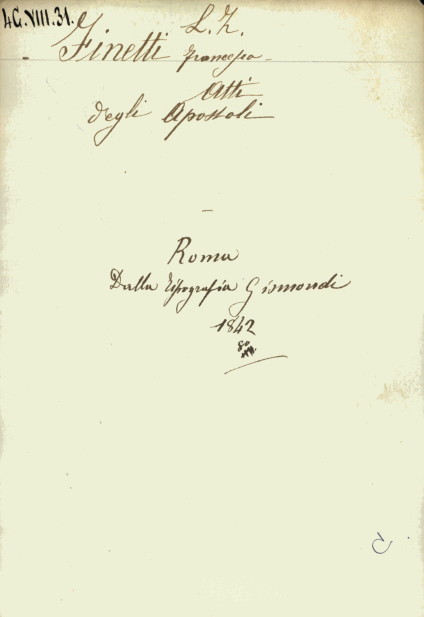 4G.VIII.31.
L. Z.
Finetti Francesco
Atti
degli Apostoli
Roma
Dalla Tipografia Gismondi
1842
8º